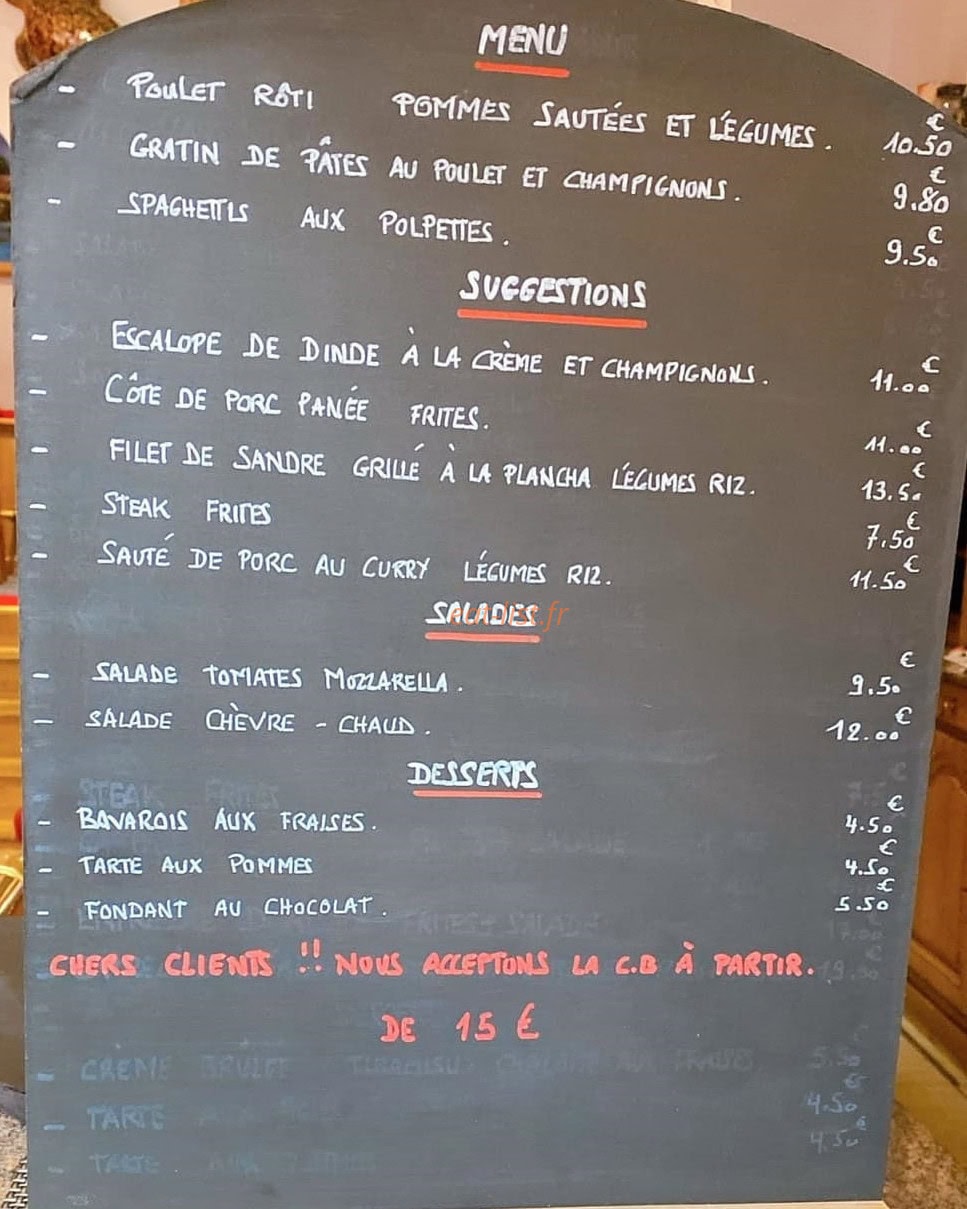 MENU
- POULET RÔTI POMMES SAUTÉES ET LÉGUMES. 10.50 €
- GRATIN DE PÂTES AU POULET ET CHAMPIGNONS. 9.80 €
- SPAGHETTIS AUX POLPETTES. 9.50 €
SUGGESTIONS
- ESCALOPE DE DINDE À LA CRÈME ET CHAMPIGNONS. 11.00 €
- CÔTE DE PORC PANÉE FRITES. 11.00 €
- FILET DE SANDRE GRILLÉ À LA PLANCHA LÉGUMES RIZ. 13.50 €
- STEAK FRITES 7.50 €
- SAUTÉ DE PORC AU CURRY LÉGUMES RIZ. 11.50 €
SALADES
- SALADE TOMATES MOZZARELLA. 9.50 €
- SALADE CHÈVRE - CHAUD. 12.00 €
DESSERTS
STEAK FRITES
- BAVAROIS AUX FRAISES. 4.50 €
- TARTE AUX POMMES 4.50 €
- FONDANT AU CHOCOLAT. 5.50 €
FRITES + SALADE
CHERS CLIENTS !! NOUS ACCEPTONS LA C.B À PARTIR.
DE 15 €
- CREME BRULEE TIRAMISU 5.50
- TARTE 4.50 €
- TARTE 4.50 €